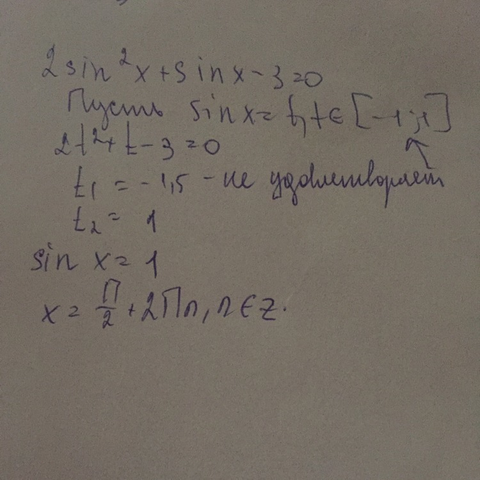 2sin²x+sinx-3=0
Пусть sinx=t, t∈[-1;1]
2t²+t-3=0
t₁=-1,5 - не удовлетворяет
t₂=1
sin x=1
x=П/2+2Пn, n∈Z.